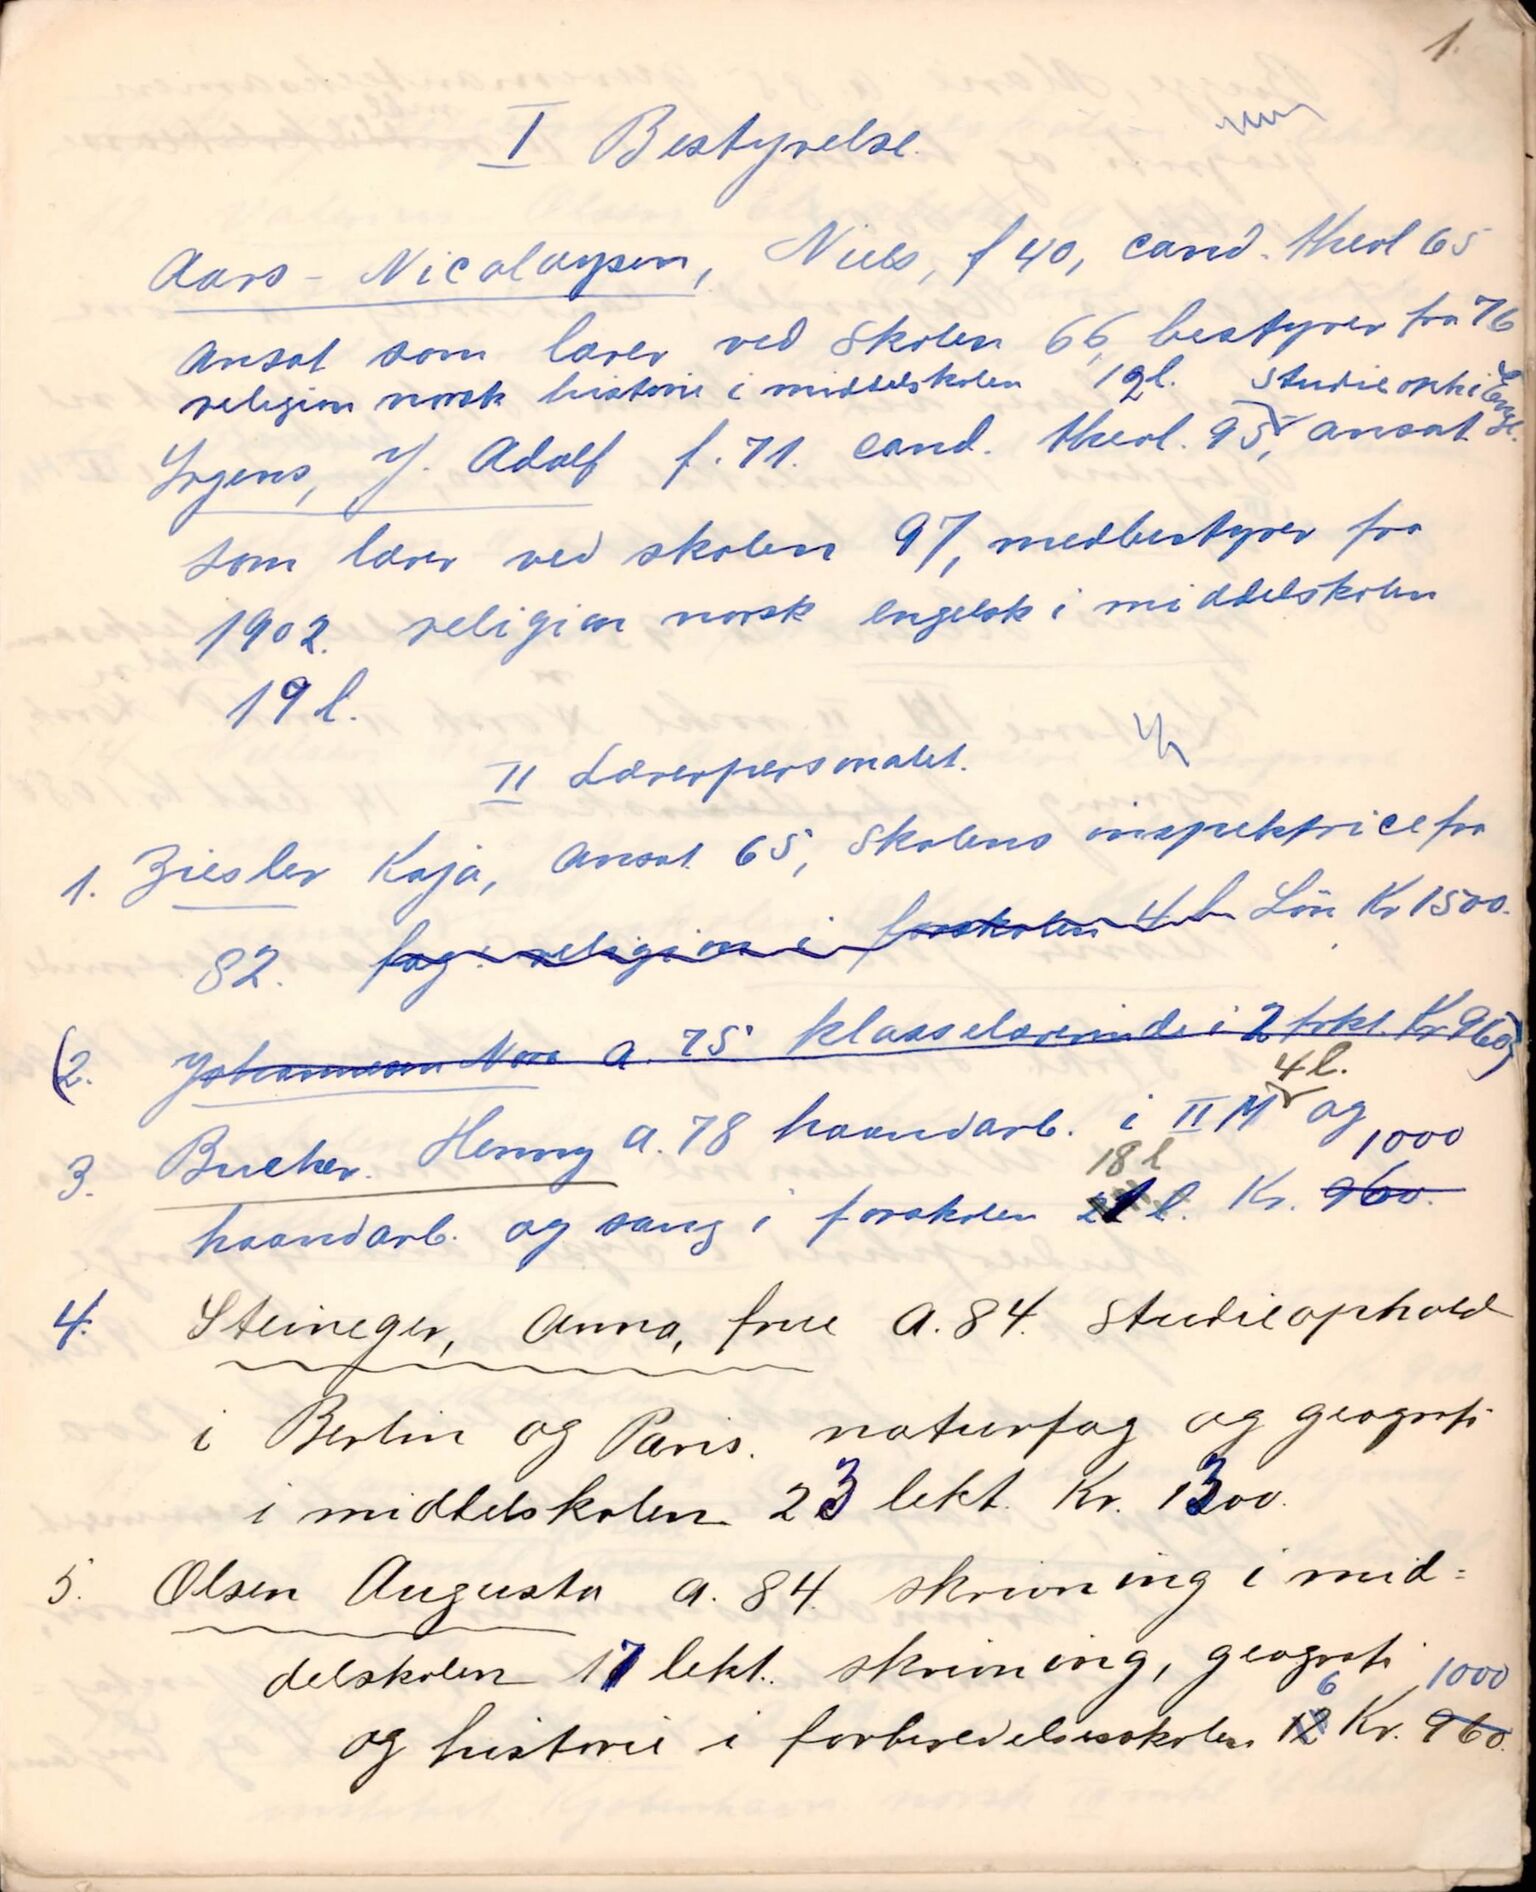 1.
I Bestyrelse.
Aars - Nicolaysen, Niels, f 40, cand. theol 65
ansat som lærer ved skolen 66, bestyrer fra 76
religion norsk historie i middelskolen 12 l.
Irgens, J. Adolf f. 71. cand. theol. 95, studieoph i Engl. ansat
som lærer ved skolen 97, medbestyrer fra
1902. religion norsk engelsk i middelskolen
19 l.
II Lærerpersonalet.
1. Ziesler Kaja, ansat 65, skolens inspektrice fra
82. fag: religion i forskolen 4 l. Lön Kr 1500.
(2. Johannesen Nora a. 75 klasselærerinde i 2 frkl. Kr 960)
4 l.
3. Bucher. Henny a. 78 haandarb. i II M og
18 l 1000
haandarb. og sang i forskolen 21 l. Kr. 960.
4. Steineger, Anna, frue a. 84. studieophold
i Berlin og Paris. naturfag og geografi
i middelskolen 23 lekt. Kr. 1300.
5. Olsen Augusta a. 84 skrivning i mid=
delskolen 17 lekt. skrivning, geografi
6 1000
og historie i forberedelsesskolen 12 Kr. 960.